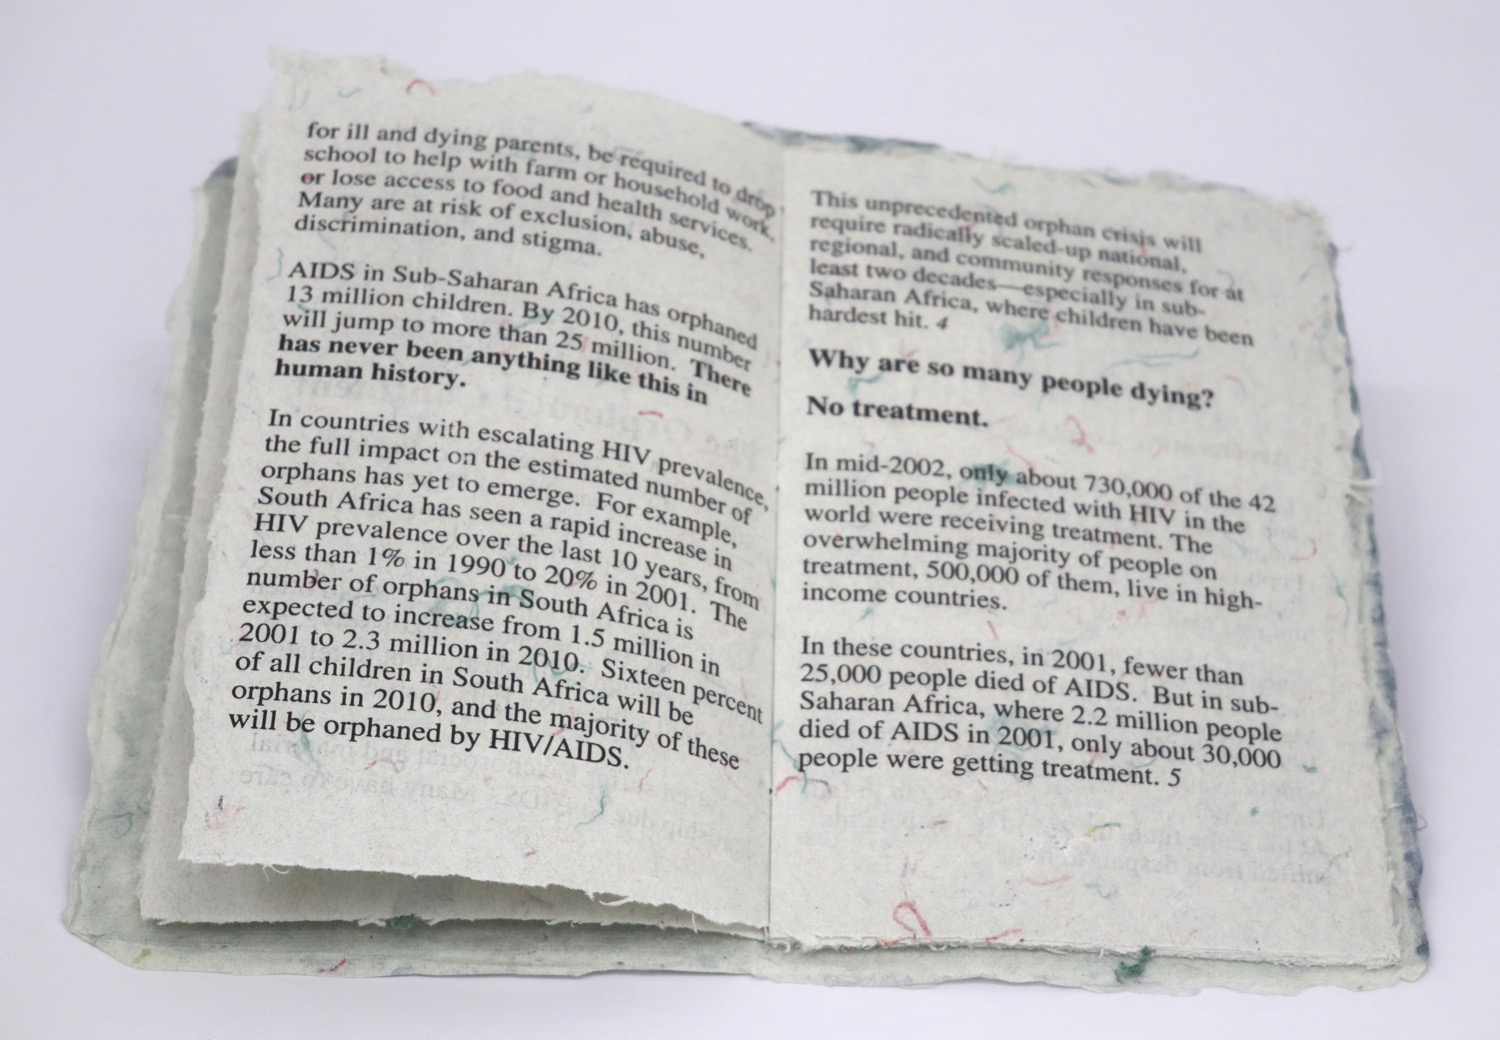 for ill and dying parents, be required to drop
school to help with farm or household work,
or lose access to food and health services.
Many are at risk of exclusion, abuse,
discrimination, and stigma.
AIDS in Sub-Saharan Africa has orphaned
13 million children. By 2010, this number
will jump to more than 25 million. There
has never been anything like this in
human history.
In countries with escalating HIV prevalence,
the full impact on the estimated number of
orphans has yet to emerge. For example,
South Africa has seen a rapid increase in
HIV prevalence over the last 10 years, from
less than 1% in 1990 to 20% in 2001. The
number of orphans in South Africa is
expected to increase from 1.5 million in
2001 to 2.3 million in 2010. Sixteen percent
of all children in South Africa will be
orphans in 2010, and the majority of these
will be orphaned by HIV/AIDS.
This unprecedented orphan crisis will
require radically scaled-up national,
regional, and community responses for at
least two decades—especially in sub-
Saharan Africa, where children have been
hardest hit. 4
Why are so many people dying?
No treatment.
In mid-2002, only about 730,000 of the 42
million people infected with HIV in the
world were receiving treatment. The
overwhelming majority of people on
treatment, 500,000 of them, live in high-
income countries.
In these countries, in 2001, fewer than
25,000 people died of AIDS. But in sub-
Saharan Africa, where 2.2 million people
died of AIDS in 2001, only about 30,000
people were getting treatment. 5